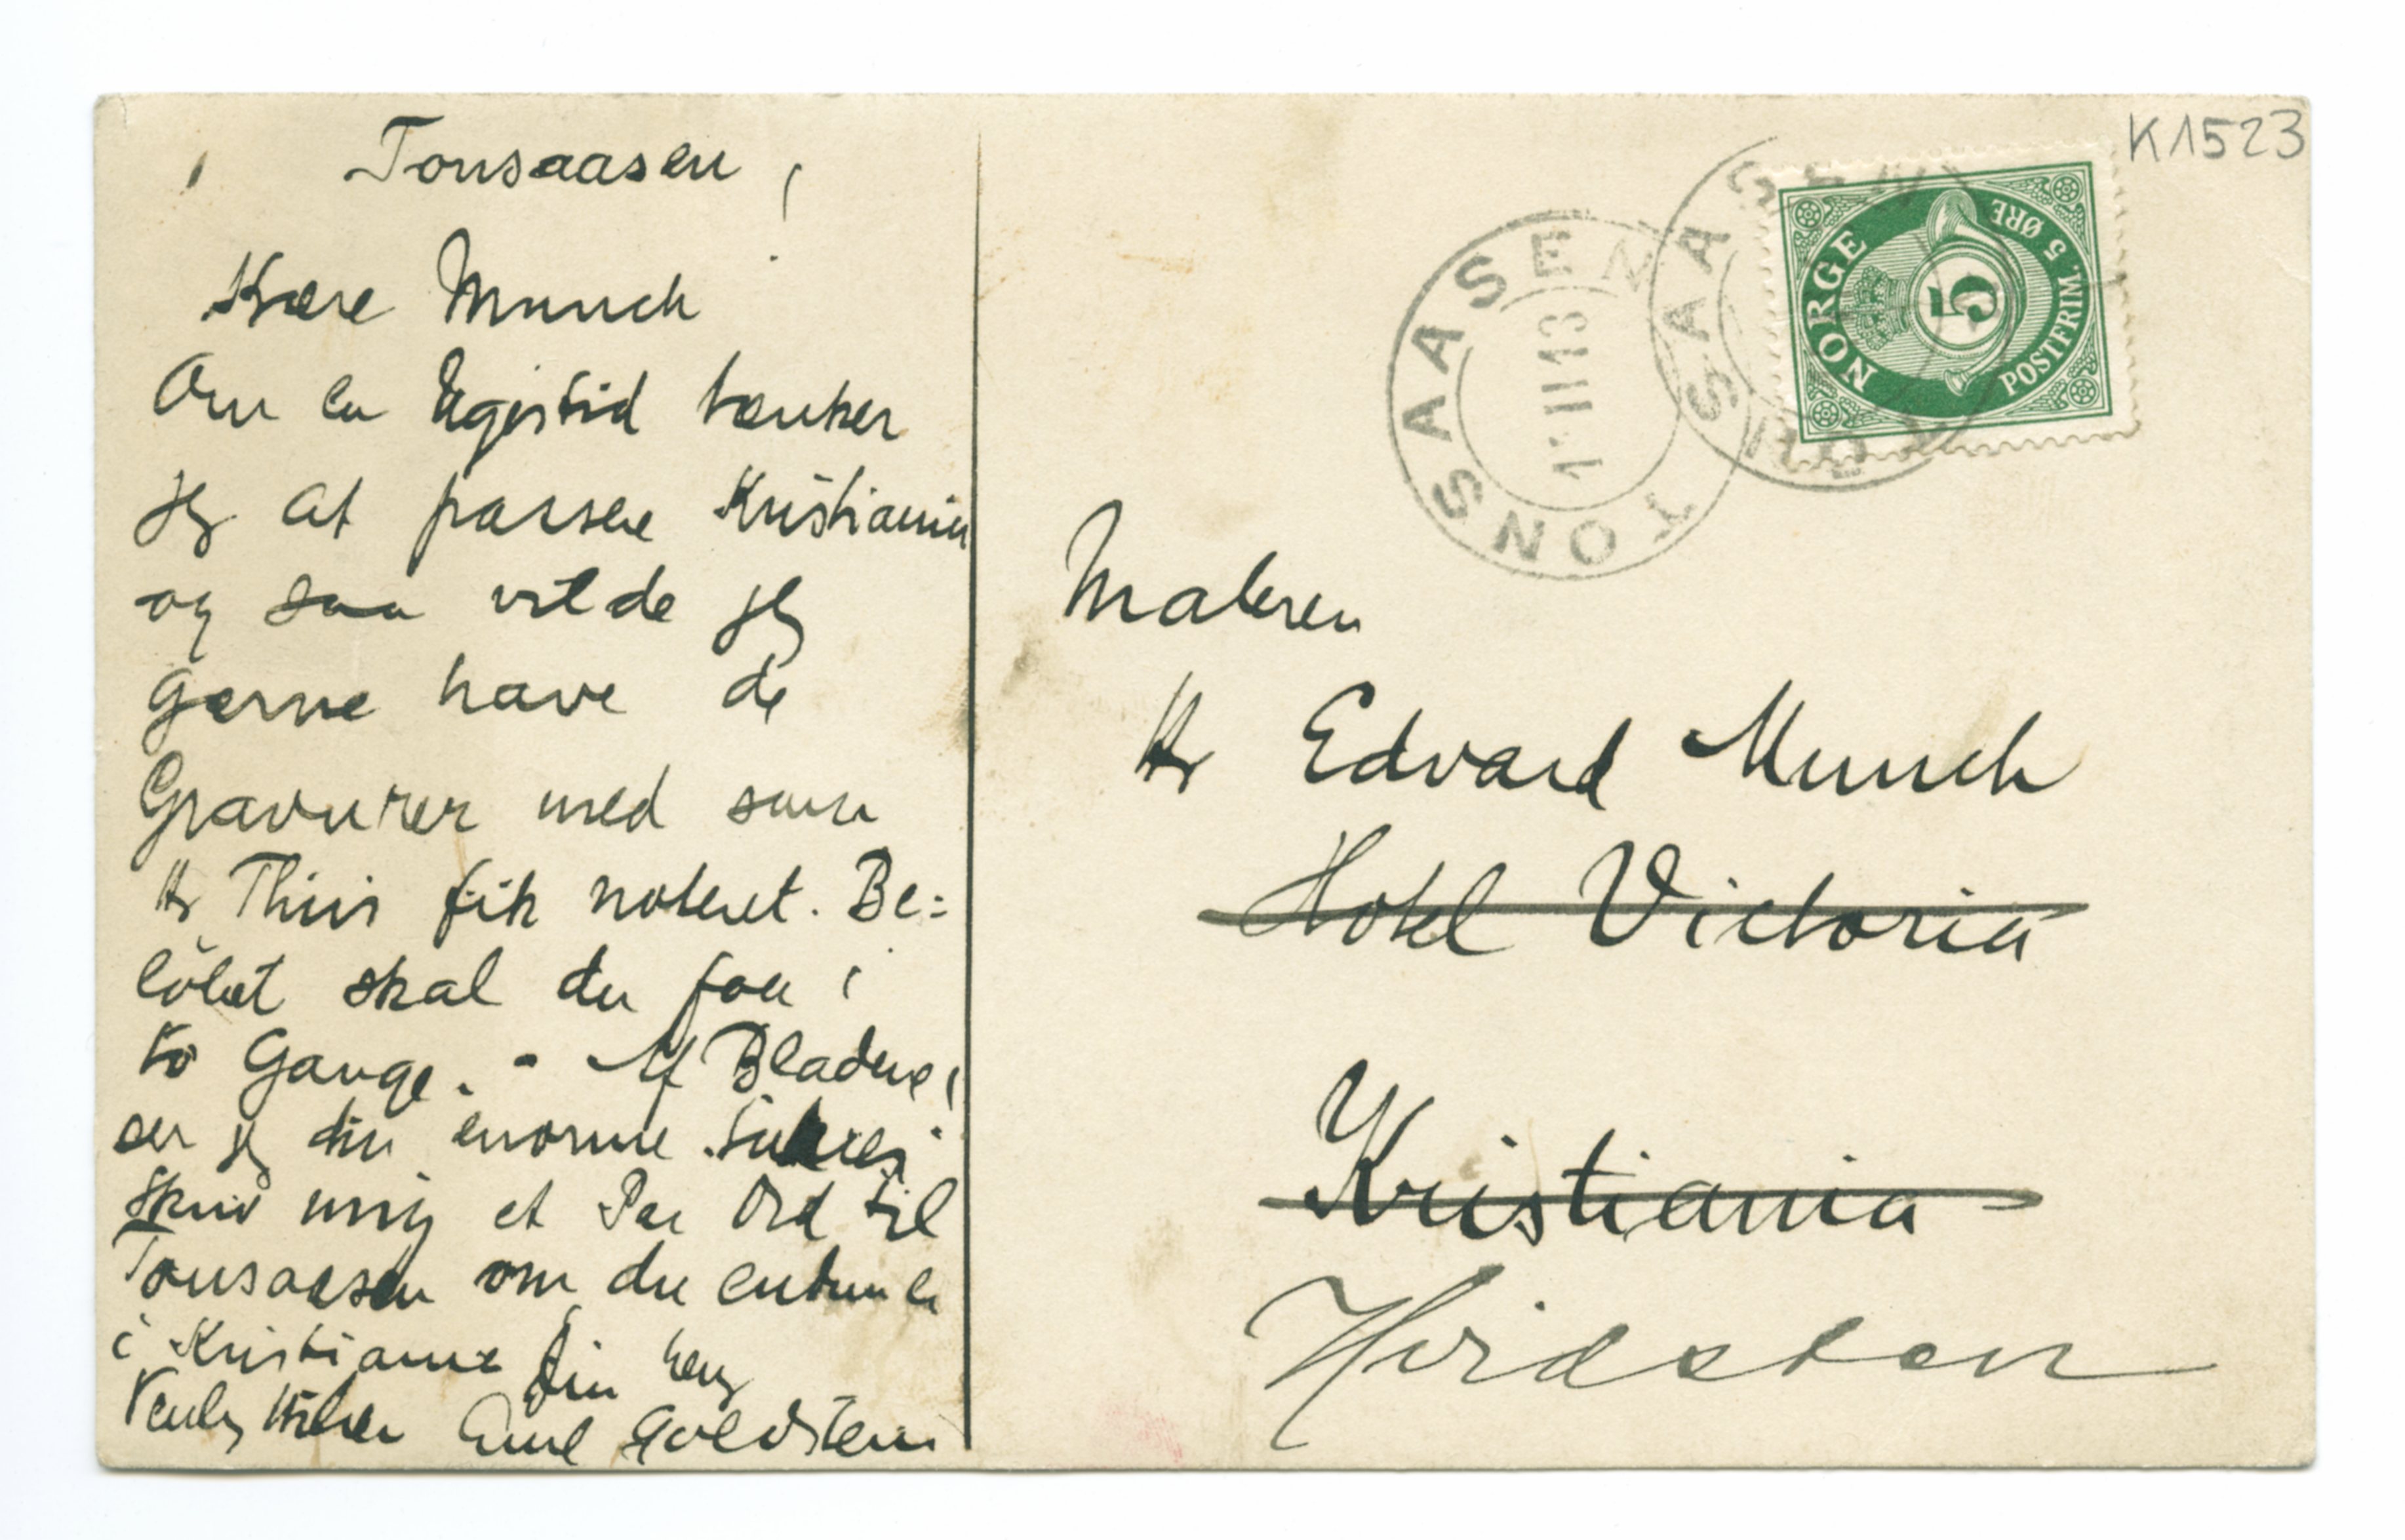 Tonsaasen
Kære Munch
Om en Ugestid tænker
jeg at passere Kristiania
og saa vilde jeg
gerne have de
Gravurer med som
Hr Thiis fik noteret. Be=
löbet skal du faa i
to Gange. - Af Bladene
ser jeg din enorme Succes
Skriv mig et Par Ord til
Tonsaasen om du endnu er
i Kristiania Din heng
Venlig Hilsen Emil Goldstein
K1523
TONSAASEN
1-II13
TONSAASEN
NORGE
5
POSTFRIM. 5 ØRE
Maleren
Hr Edvard Munch
Hotel Victoria
Kristiania
Hvidsten